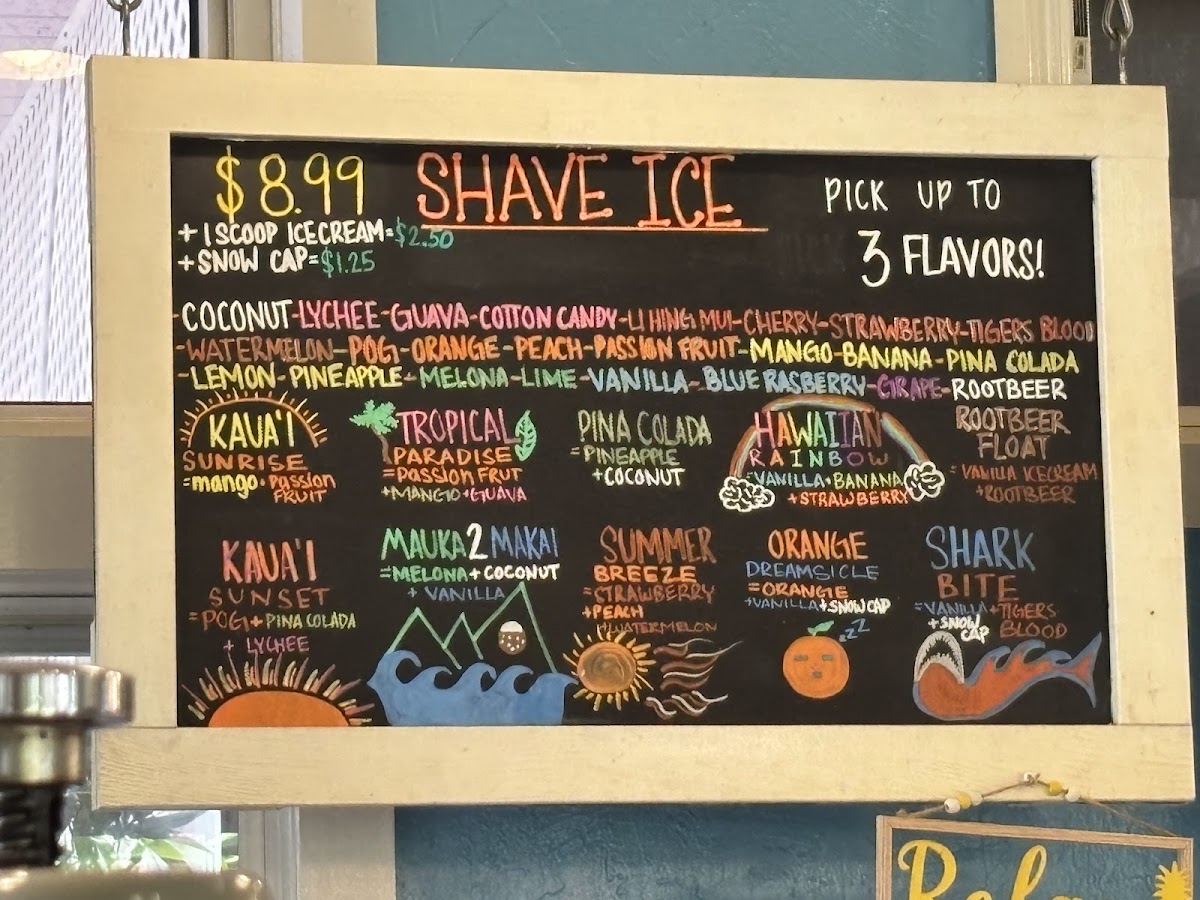 $8.99 SHAVE ICE PICK UP TO
+ 1 SCOOP ICECREAM=$2.50
+ SNOW CAP=$1.25
3 FLAVORS!
-COCONUT-LYCHEE-GUAVA-COTTON CANDY-LI HING MUI-CHERRY-STRAWBERRY-TIGERS BLOOD
-WATERMELON-POG-ORANGE-PEACH-PASSION FRUIT-MANGO-BANANA-PINA COLADA
-LEMON-PINEAPPLE-MELONA-LIME-VANILLA-BLUE RASBERRY-GRAPE-ROOTBEER
KAUA'I
SUNRISE
=mango+Passion
FRUIT
TROPICAL
PARADISE
=PASSION FRUT
+MANGO+GUAVA
PINA COLADA
=PINEAPPLE
+COCONUT
HAWAIIAN
RAINBOW
=VANILLA+BANANA
+STRAWBERRY
ROOTBEER
FLOAT
=VANILLA ICECREAM
+ROOTBEER
KAUA'I
SUNSET
=POG+PINA COLADA
+ LYCHEE
MAUKA 2 MAKAI
=MELONA+COCONUT
+ VANILLA
SUMMER
BREEZE
=STRAWBERRY
+PEACH
+WATERMELON
ORANGE
DREAMSICLE
=ORANGE
+VANILLA+SNOW CAP
zZZ
SHARK
BITE
=VANILLA+TIGERS
BLOOD
+SNOW
CAP